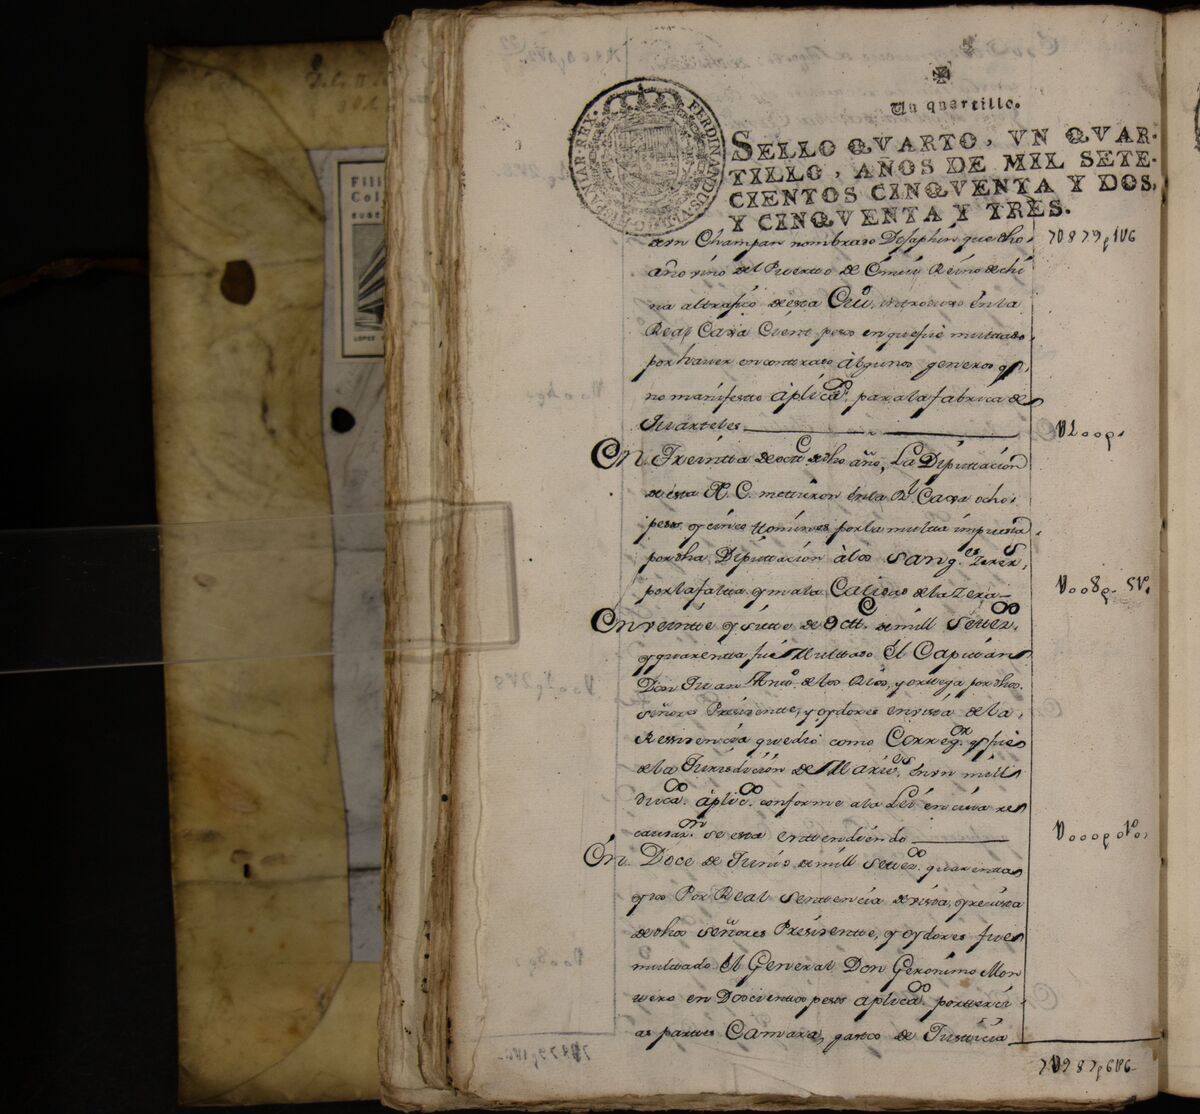 Un quartillo.
SELLO QVARTO, VN QVAR-
TILLO, AÑOS DE MIL SETE-
CIENTOS CINQVENTA Y DOS,
Y CINQVENTA Y TRES.
FERDINANDUS·VI·D·G·HISPANIAR·REX·
Fili
Col
LOPEZ
aen Champan nombrado que dho
año vino del Puerto de Reino de chi
na al trafico desta introduxo en la
Real Caxa Cient pesos en que fue multado
por haver encontrado àlgunos generos q.
no manifesto àplica.ᵒˢ para la fabrica de
Quarteles
En Treinta de oct.ᵉ de dho año, La Diputtacion
de esta N. C. mettieron en la R.ˡ Caxa ocho
pesos y cinco ttomines por la multta impuesta
por dha Diputtacion à los Sang.ᵉˢ Zerer.ˢ
por la faltta, y mala Calidad de la Zera
En veintte y siette de Octt.ᵉ de mill Settez.ᵒˢ
y quarentta fue Multtado el Capittan
Don Juan Antt.ᵒ de los Rios, y orttega por dhos
señores Presidentte, y oydores en vista de la
Ressidencia que dió como Correg.ᵒʳ q fue
de la Jurisdicion de en un mill
duca.ᵒˢ àplic.ᵒˢ conforme a la Lei en cuia re
caudaz.ᵒⁿ se esta enttendiendo
En Doce de Junio de mill Settez.ᵒˢ quarentta
y dos Por Real Senttencia de vista, y revista
de dhos señores Presidentte, y oydores fue
multtado el General Don Geronimo Mon
ttero en Doscienttos pesos aplica.ᵒˢ por terci
as parttes Camara, gasttos de Justticia